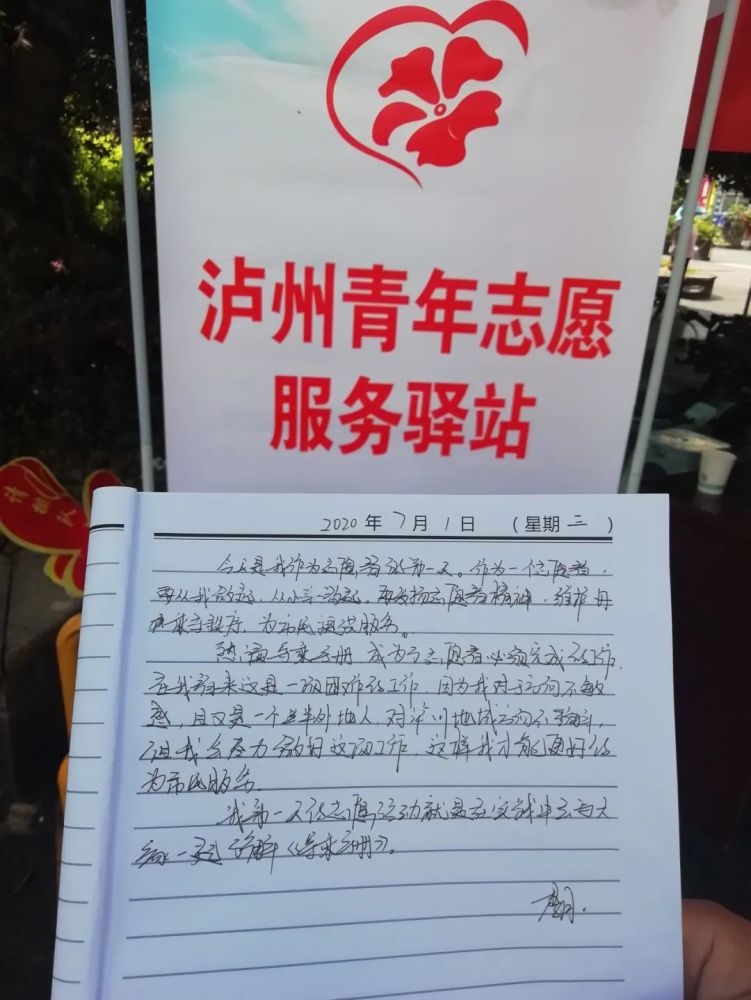 泸州青年志愿
服务驿站
2020 年 7 月 1 日 （星期 三 ）
今天是我作为志愿者的第一天。作为一位志愿者，
要从我做起，从小事做起，要发扬志愿者精神，维护
乘车秩序，为市民提供服务。
熟读乘车手册，成为了志愿者必须完成的工作，
在我看来这是一项困难的工作，因为我对于方向不敏
感，且又是一个半外地人，对泸州地域方向不了解，
但我会尽力做好这项工作，这样我才能更好的
为市民服务。
我第一天的志愿活动就是在实践中去与大
家一起了解《乘车手册》。